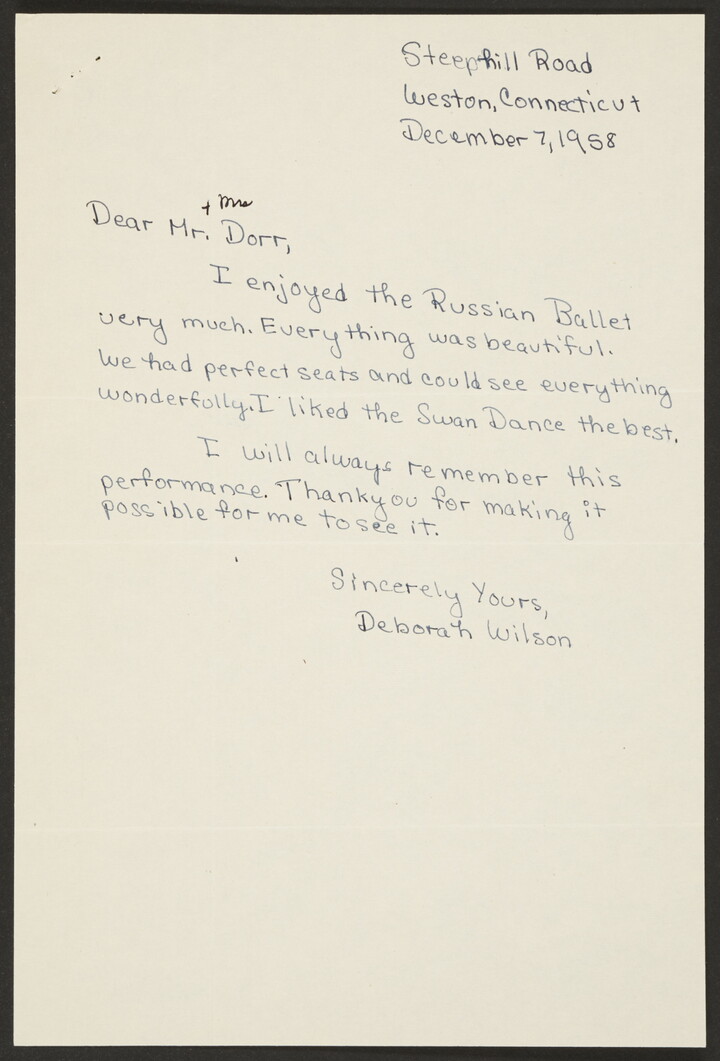 Steephill Road
Weston, Connecticut
December 7, 1958
+ Mrs
Dear Mr. Dorr,
I enjoyed the Russian Ballet
very much. Everything was beautiful.
We had perfect seats and could see everything
wonderfully. I liked the Swan Dance the best.
I will always remember this
performance. Thankyou for making it
possible for me to see it.
Sincerely Yours,
Deborah Wilson